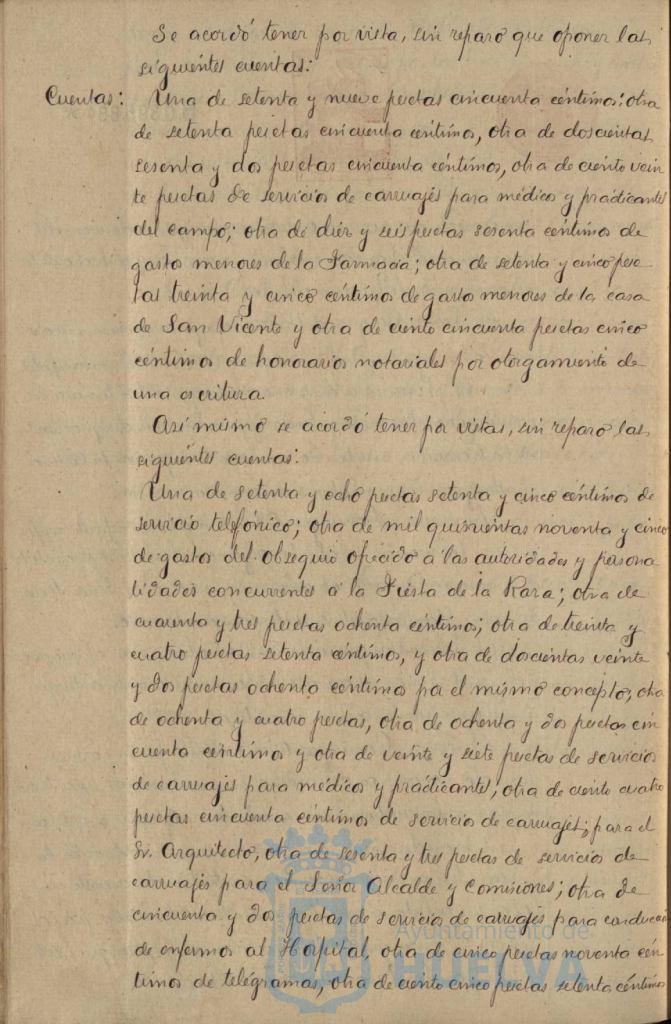 Se acordó tener por vista, sin reparo que oponer las
siguientes cuentas:
Cuentas: Una de setenta y nueve pesetas cincuenta céntimos: otra
de setenta pesetas cincuenta céntimos, otra de doscientas
sesenta y dos pesetas cincuenta céntimos, otra de ciento vein
te pesetas de servicio de carruajes para médicos y practicantes
del campo; otra de diez y seis pesetas sesenta céntimos de
gastos menores de la Farmacia; otra de setenta y cinco pese
tas treinta y cinco céntimos de gastos menores de la casa
de San Vicente y otra de ciento cincuenta pesetas cinco
céntimos de honorarios notariales por otorgamiento de
una escritura.
Así mismo se acordó tener por vistas, sin reparo las
siguientes cuentas:
Una de setenta y ocho pesetas setenta y cinco céntimos de
servicio telefónico; otra de mil quinientas noventa y cinco
de gastos del obsequio ofrecido a las autoridades y persona
lidades concurrentes a la Fiesta de la Raza; otra de
cuarenta y tres pesetas ochenta céntimos; otra de treinta y
cuatro pesetas setenta céntimos, y otra de doscientas veinte
y dos pesetas ochenta céntimos por el mismo concepto; otra
de ochenta y cuatro pesetas, otra de ochenta y dos pesetas cin
cuenta céntimos y otra de veinte y siete pesetas de servicios
de carruajes para médicos y practicantes; otra de ciento cuatro
pesetas cincuenta céntimos de servicio de carruajes; para el
Sr. Arquitecto, otra de sesenta y tres pesetas de servicio de
carruajes para el Señor Alcalde y Comisiones; otra de
cincuenta y dos pesetas de servicio de carruajes para conducción
de enfermos al Hospital, otra de cinco pesetas noventa cén
timos de telegramas, otra de ciento cinco pesetas setenta céntimos
Ayuntamiento de
HUELVA